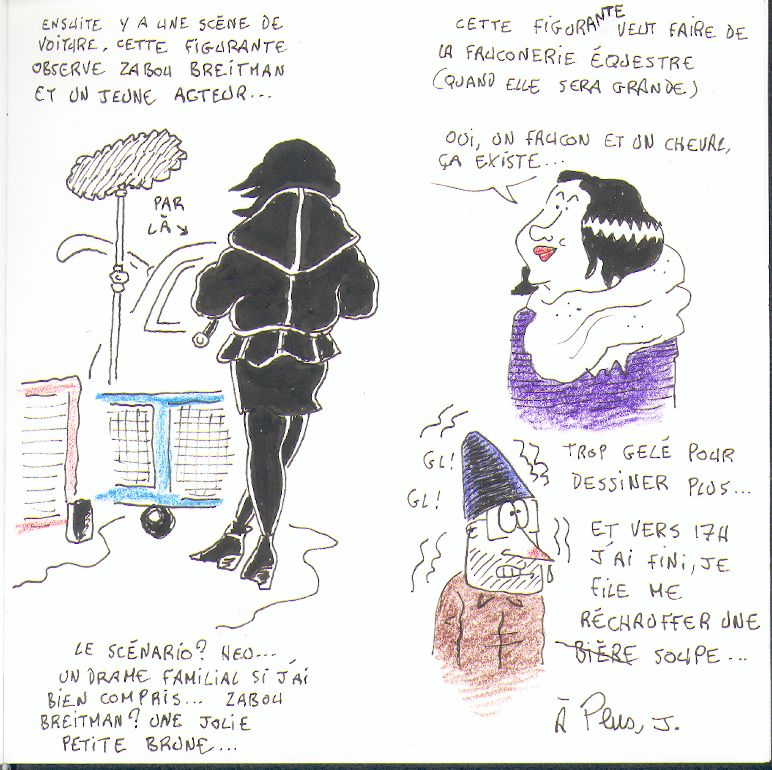 ENSUITE Y A UNE SCÈNE DE
VOITURE, CETTE FIGURANTE
OBSERVE ZABOU BREITMAN
ET UN JEUNE ACTEUR...
PAR
LÀ
LE SCÉNARIO? HEU...
UN DRAME FAMILIAL SI J'AI
BIEN COMPRIS... ZABOU
BREITMAN? UNE JOLIE
PETITE BRUNE...
CETTE FIGURANTE VEUT FAIRE DE
LA FAUCONERIE ÉQUESTRE
(QUAND ELLE SERA GRANDE)
OUI, UN FAUCON ET UN CHEVAL,
ÇA EXISTE...
GL!
GL!
TROP GELÉ POUR
DESSINER PLUS...
ET VERS 17H
J'AI FINI, JE
FILE ME
RÉCHAUFFER UNE
BIÈRE SOUPE...
À Plus, J.